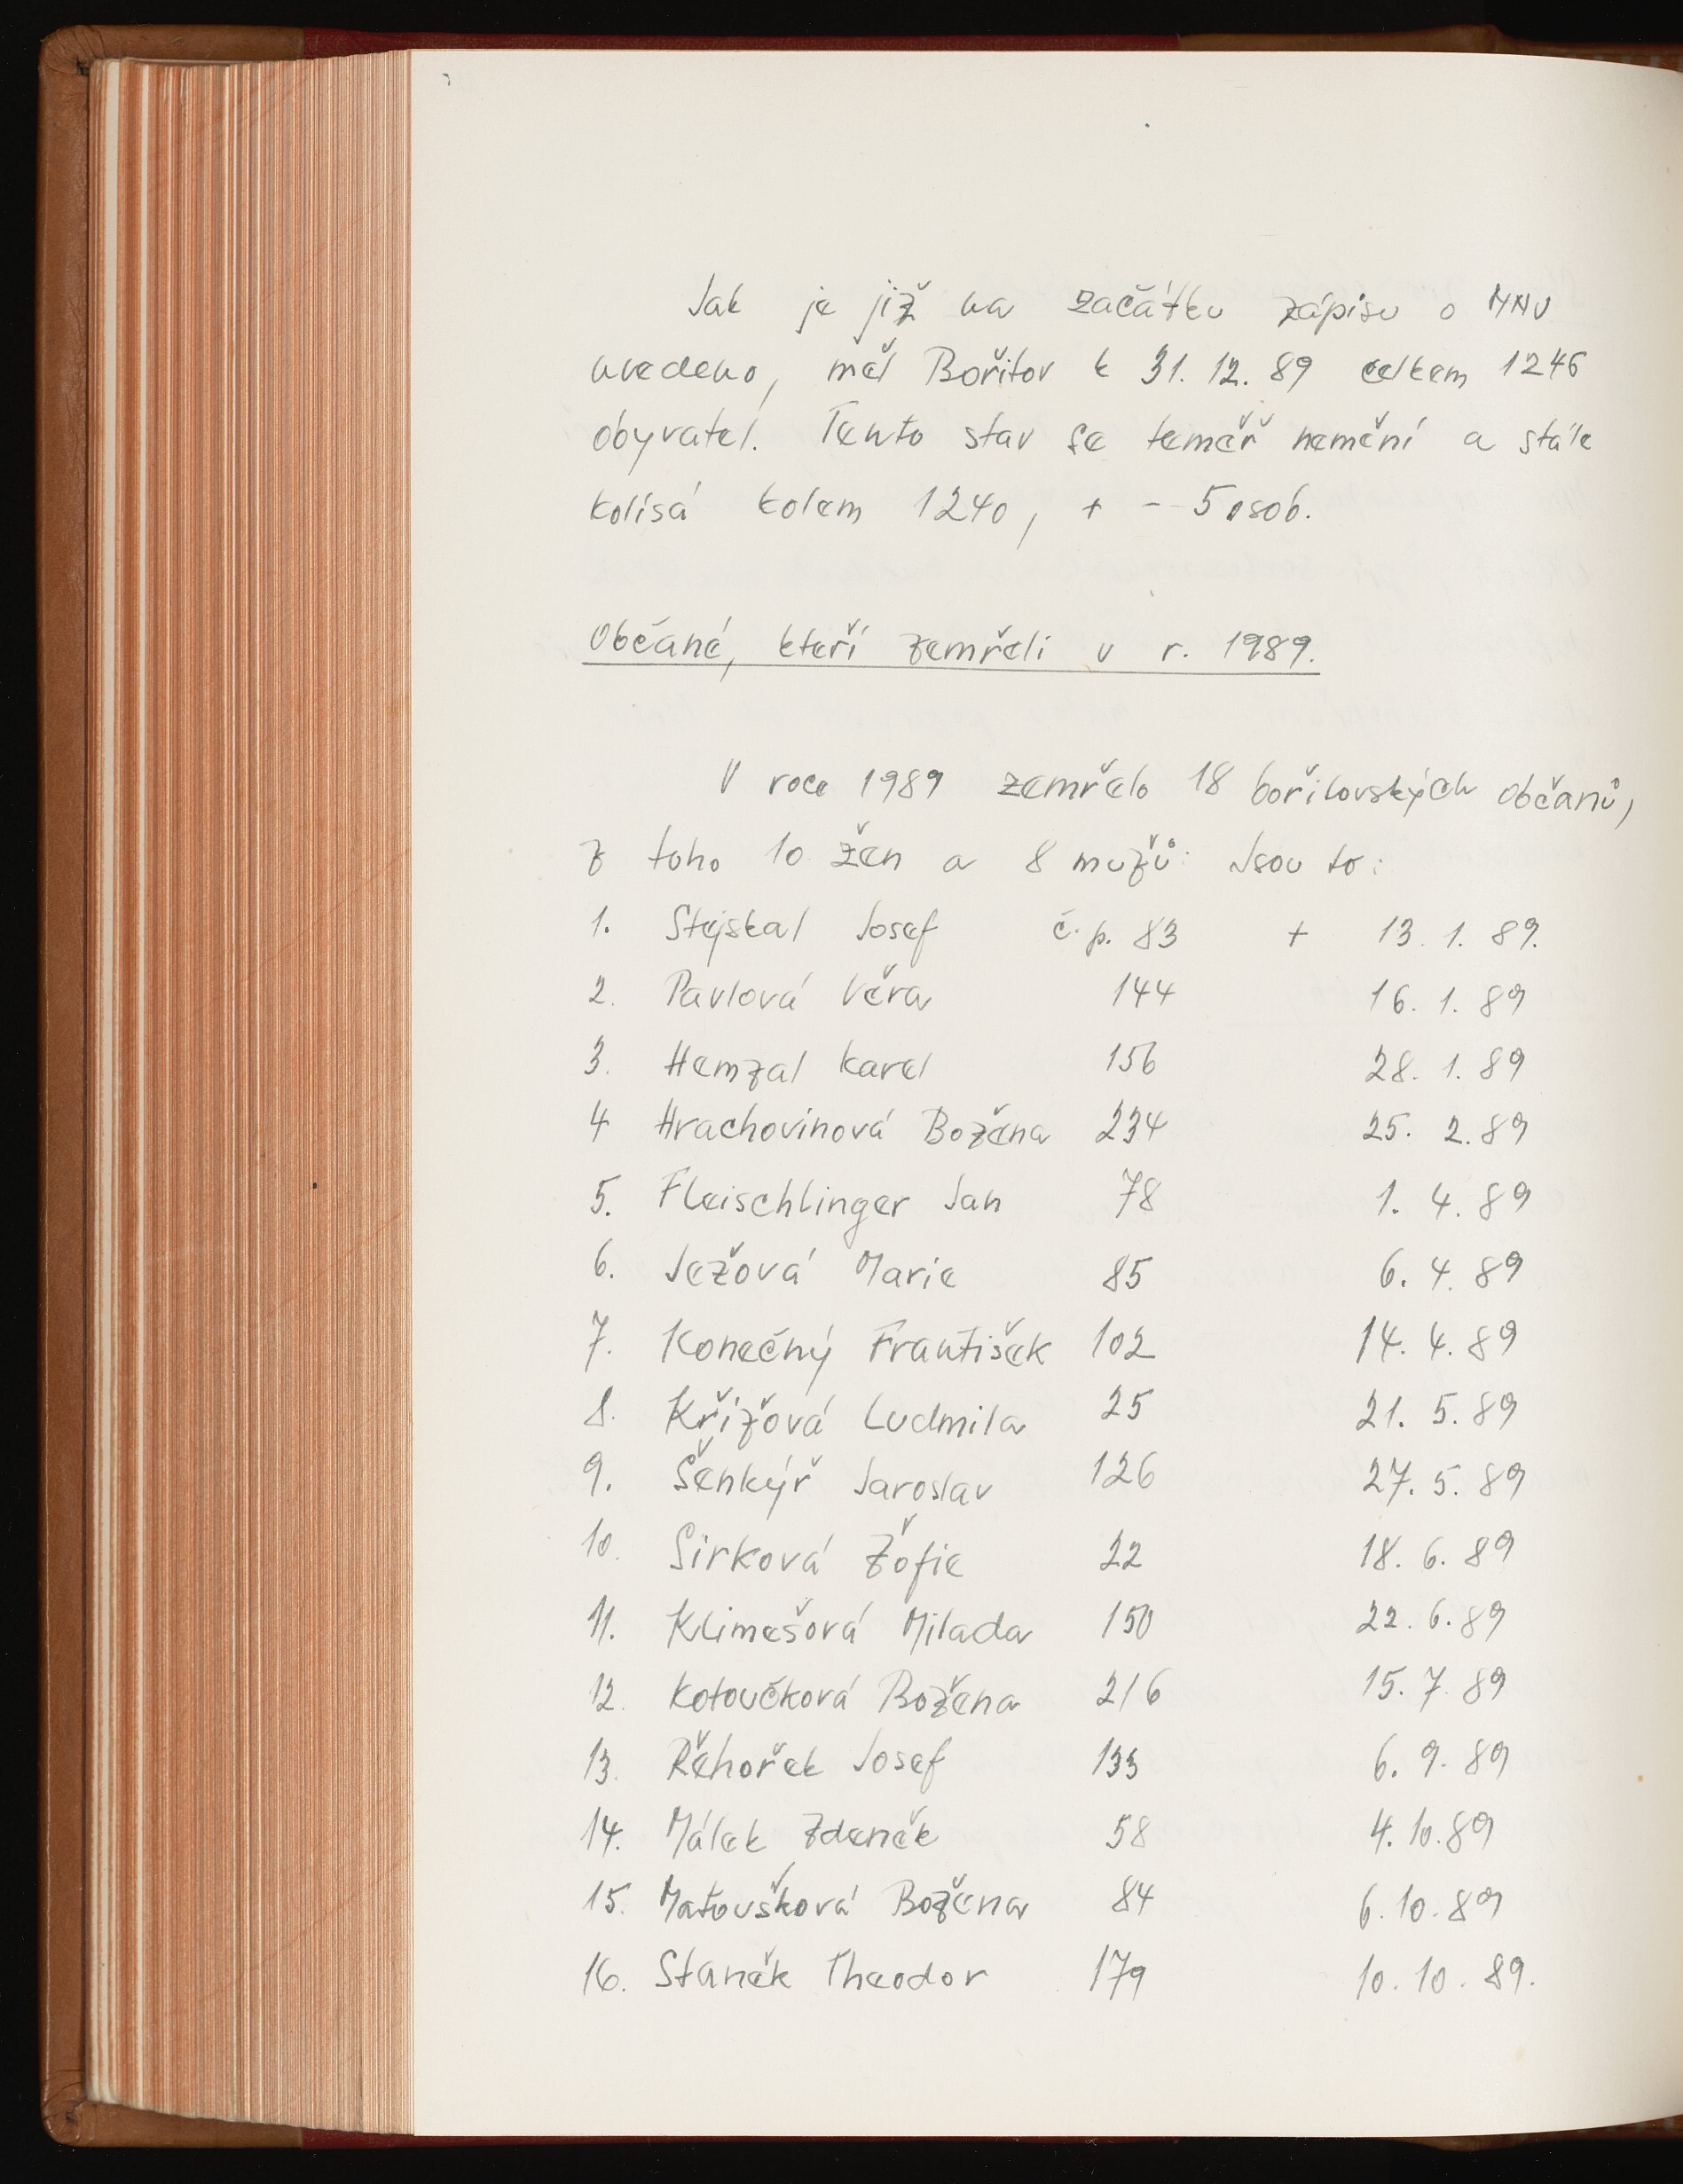 Jak je již na začátku zápisu o MNV
uvedeno, měl Bořitov k 31. 12. 89 celkem 1246
obyvatel. Tento stav se téměř nemění a stále
kolísá kolem 1240, + - 5 osob.
Občané, kteří zemřeli v r. 1989.
V roce 1989 zemřelo 18 bořitovských občanů,
z toho 10 žen a 8 mužů. Jsou to:
1. Stejskal Josef č. p. 83 + 13. 1. 89.
2. Pavlová Věra 144 16. 1. 89
3. Hemzal Karel 156 28. 1. 89
4 Hrachovinová Božena 234 25. 2. 89
5. Fleischlinger Jan 78 1. 4. 89
6. Ježová Marie 85 6. 4. 89
7. Konečný František 102 14. 4. 89
8. Křížová Ludmila 25 21. 5. 89
9. Šenkýř Jaroslav 126 27. 5. 89
10. Sirková Žofie 22 18. 6. 89
11. Klimešová Milada 150 22. 6. 89
12. Kotoučková Božena 216 15. 7. 89
13. Řehořek Josef 133 6. 9. 89
14. Málek Zdeněk 58 4. 10. 89
15. Matoušková Božena 84 6. 10. 89
16. Staněk Theodor 179 10. 10. 89.